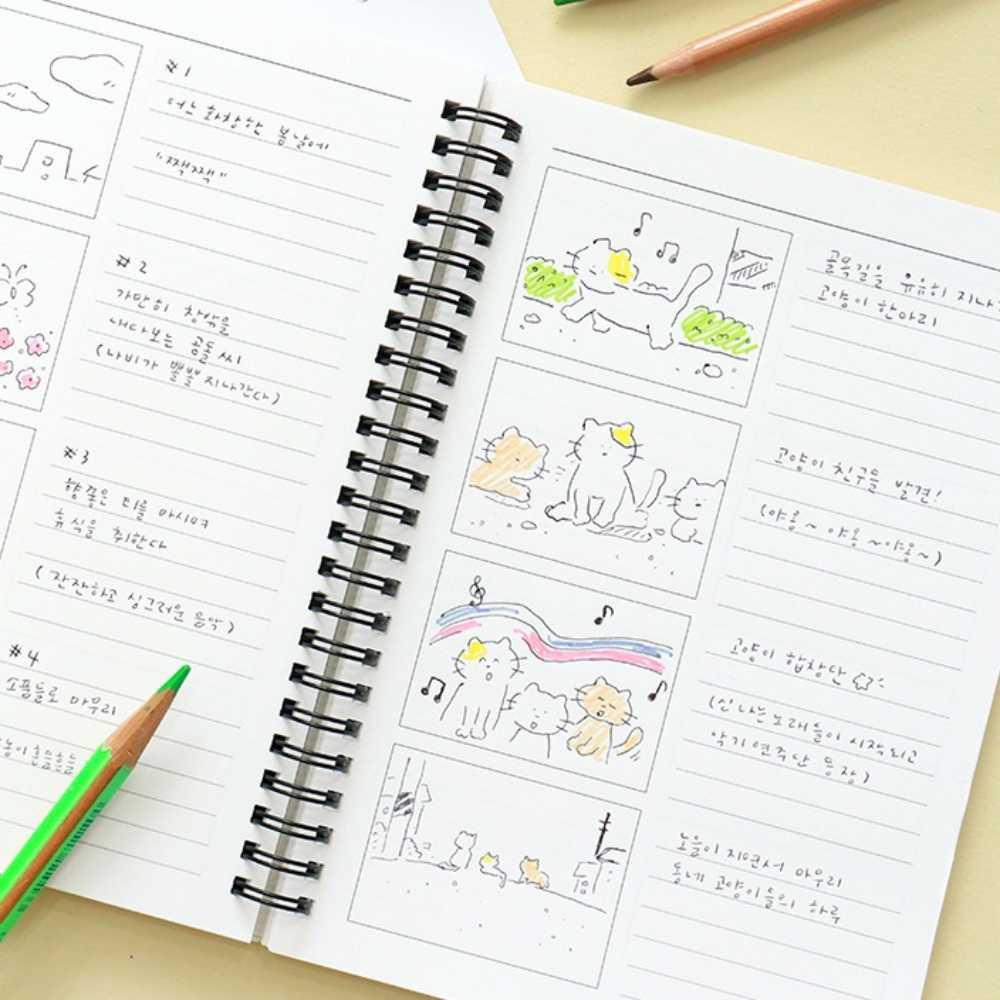 #1
어느 화창한 봄날에
"짹짹"
#2
가만히 창밖을
내다보는 곰돌 씨
(나비가 뽈뽈 지나간다)
#3
향좋은 티를 마시며
휴식을 취한다
(잔잔하고 싱그러운 음악)
#4
소품들로 마무리
골목길을 유유히 지나
고양이 한마리
고양이 친구들 발견!
(야옹~ 야옹~야옹~)
고양이 합창단
(신나는노래들이 시작되고
악기 연주단 등장)
노을이 지면서 마무리
동네 고양이들의 하루